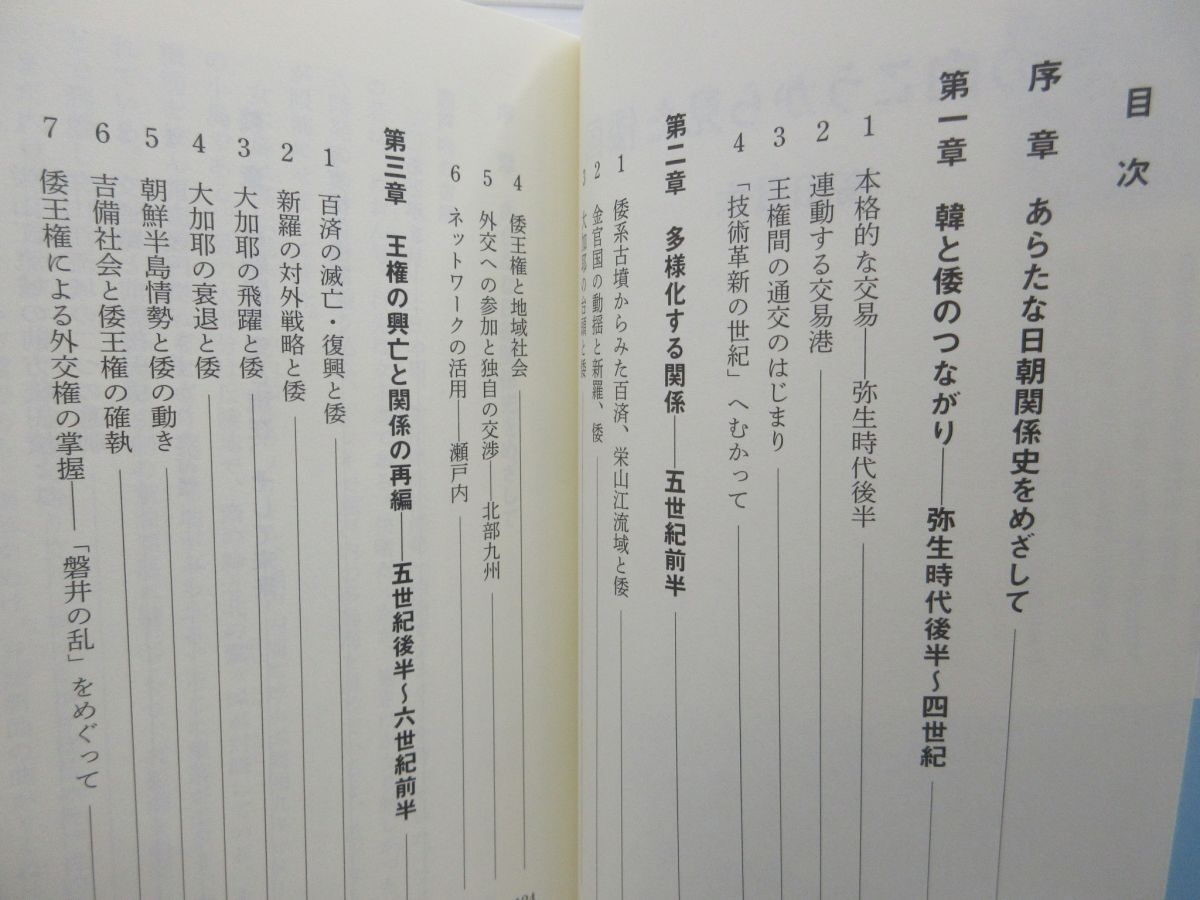 目次
序章 あらたな日朝関係史をめざして
第一章 韓と倭のつながり——弥生時代後半〜四世紀
1 本格的な交易——弥生時代後半
2 連動する交易港
3 王権間の通交のはじまり
4 「技術革新の世紀」へむかって
第二章 多様化する関係——五世紀前半
1 倭系古墳からみた百済、栄山江流域と倭
2 金官国の動揺と新羅、倭
3 大加耶の台頭と倭
4 倭王権と地域社会
5 外交への参加と独自の交渉——北部九州
6 ネットワークの活用——瀬戸内
第三章 王権の興亡と関係の再編——五世紀後半〜六世紀前半
1 百済の滅亡・復興と倭
2 新羅の対外戦略と倭
3 大加耶の飛躍と倭
4 大加耶の衰退と倭
5 朝鮮半島情勢と倭の動き
6 吉備社会と倭王権の確執
7 倭王権による外交権の掌握——「磐井の乱」をめぐって